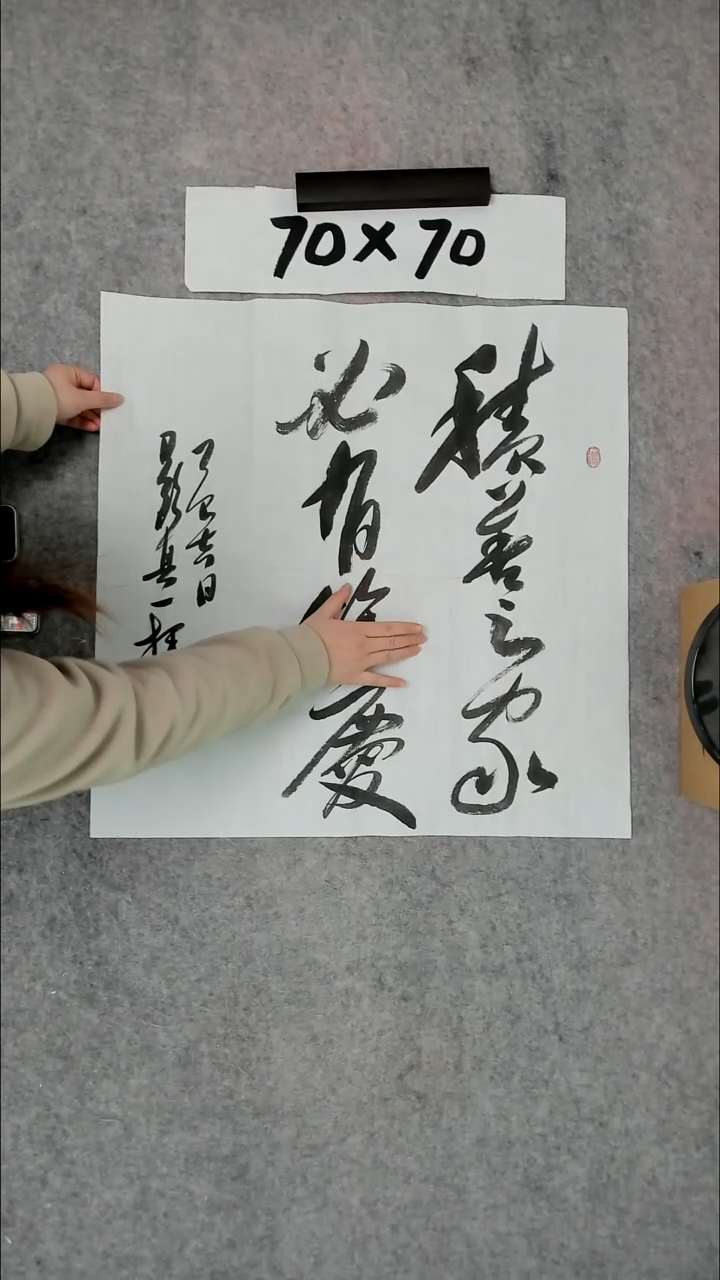 70×70
積善之家
必有餘慶
乙巳吉日